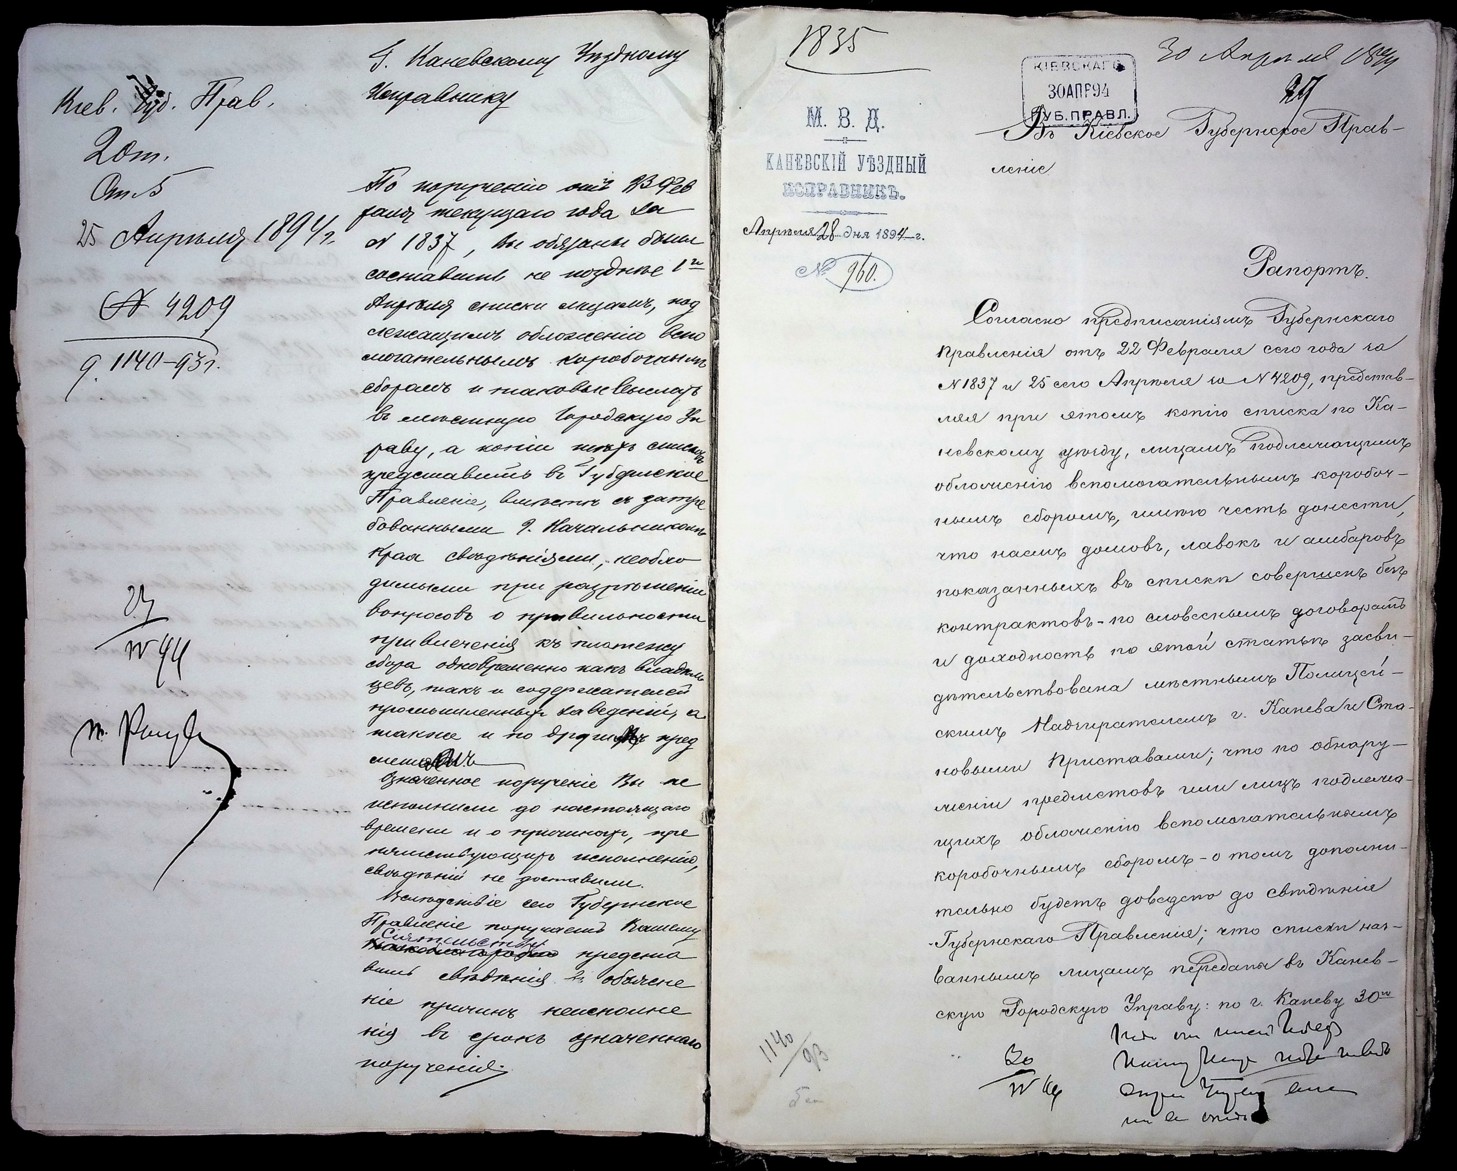 Кіев. Губ. Прав.
2 от.
Ст. 5
25 Апрѣля 1894 г.
№ 4209
1140-93 г.
Г. Каневскому Уѣздному
Исправнику
По порученію отъ 23 Фев
раля текущаго года за
№ 1837, Вы обязаны были
составить не позднѣе 1го
Апрѣля списки лицамъ, под
лежащимъ обложенію вспо
могательнымъ коробочнымъ
сборомъ и таковые выслать
въ мѣстную Городскую Уп
раву, а копіи тѣхъ списковъ
представить въ Губернское
Правленіе, вмѣстѣ съ затре
бованными г. Начальникомъ
Края свѣдѣніями, необхо
димыми при разрѣшеніи
вопросовъ о правильности
привлеченія къ платежу
сбора одновременно какъ владѣль
цевъ, такъ и содержателей
промышленныхъ заведеній, а
также и по другимъ пред
метамъ
Означенное порученіе Вы не
исполнили до настоящаго
времени и о причинахъ, пре
пятствующихъ исполненію,
свѣдѣній не доставили.
Вслѣдствіе сего Губернское
Правленіе поручаетъ Вашему
Сіятельству
предста
вить свѣдѣнія въ объясне
ніе причинъ неисполне
нія въ срокъ означеннаго
порученія.
27
IV 94
1835
30 Апрѣля 1894
КІЕВСКАГО
30 АПР 94
ГУБ. ПРАВЛ.
27
М. В. Д.
КАНЕВСКІЙ УѢЗДНЫЙ
ИСПРАВНИКЪ.
Апрѣля 28 дня 1894 г.
№ 960.
Въ Кіевское Губернское Прав-
леніе
Рапортъ.
Согласно предписаніямъ Губернскаго
Правленія отъ 22 Февраля сего года за
№ 1837 и 25 сего Апрѣля за № 4209, представ-
ляя при этомъ копію списка по Ка-
невскому уѣзду, лицамъ подлежащимъ
обложенію вспомогательнымъ коробоч-
нымъ сборомъ, имѣю честь донести,
что наемъ домовъ, лавокъ и амбаровъ
показанныхъ въ списки совершенъ безъ
контрактовъ - по словеснымъ договорамъ
и доходность по этой статьѣ засви-
дѣтельствована мѣстнымъ Полицей-
скимъ Надзирателемъ г. Канева и Ста-
новыми Приставами; что по обнару-
женіи предметовъ или лицъ подлежа-
щихъ обложенію вспомогательнымъ
коробочнымъ сборомъ - о томъ дополни-
тельно будетъ доведено до свѣдѣнія
Губернскаго Правленія; что списки наз-
ваннымъ лицамъ переданы въ Канев-
скую Городскую Управу: по г. Каневу 30го
30
IV 94
1140/93